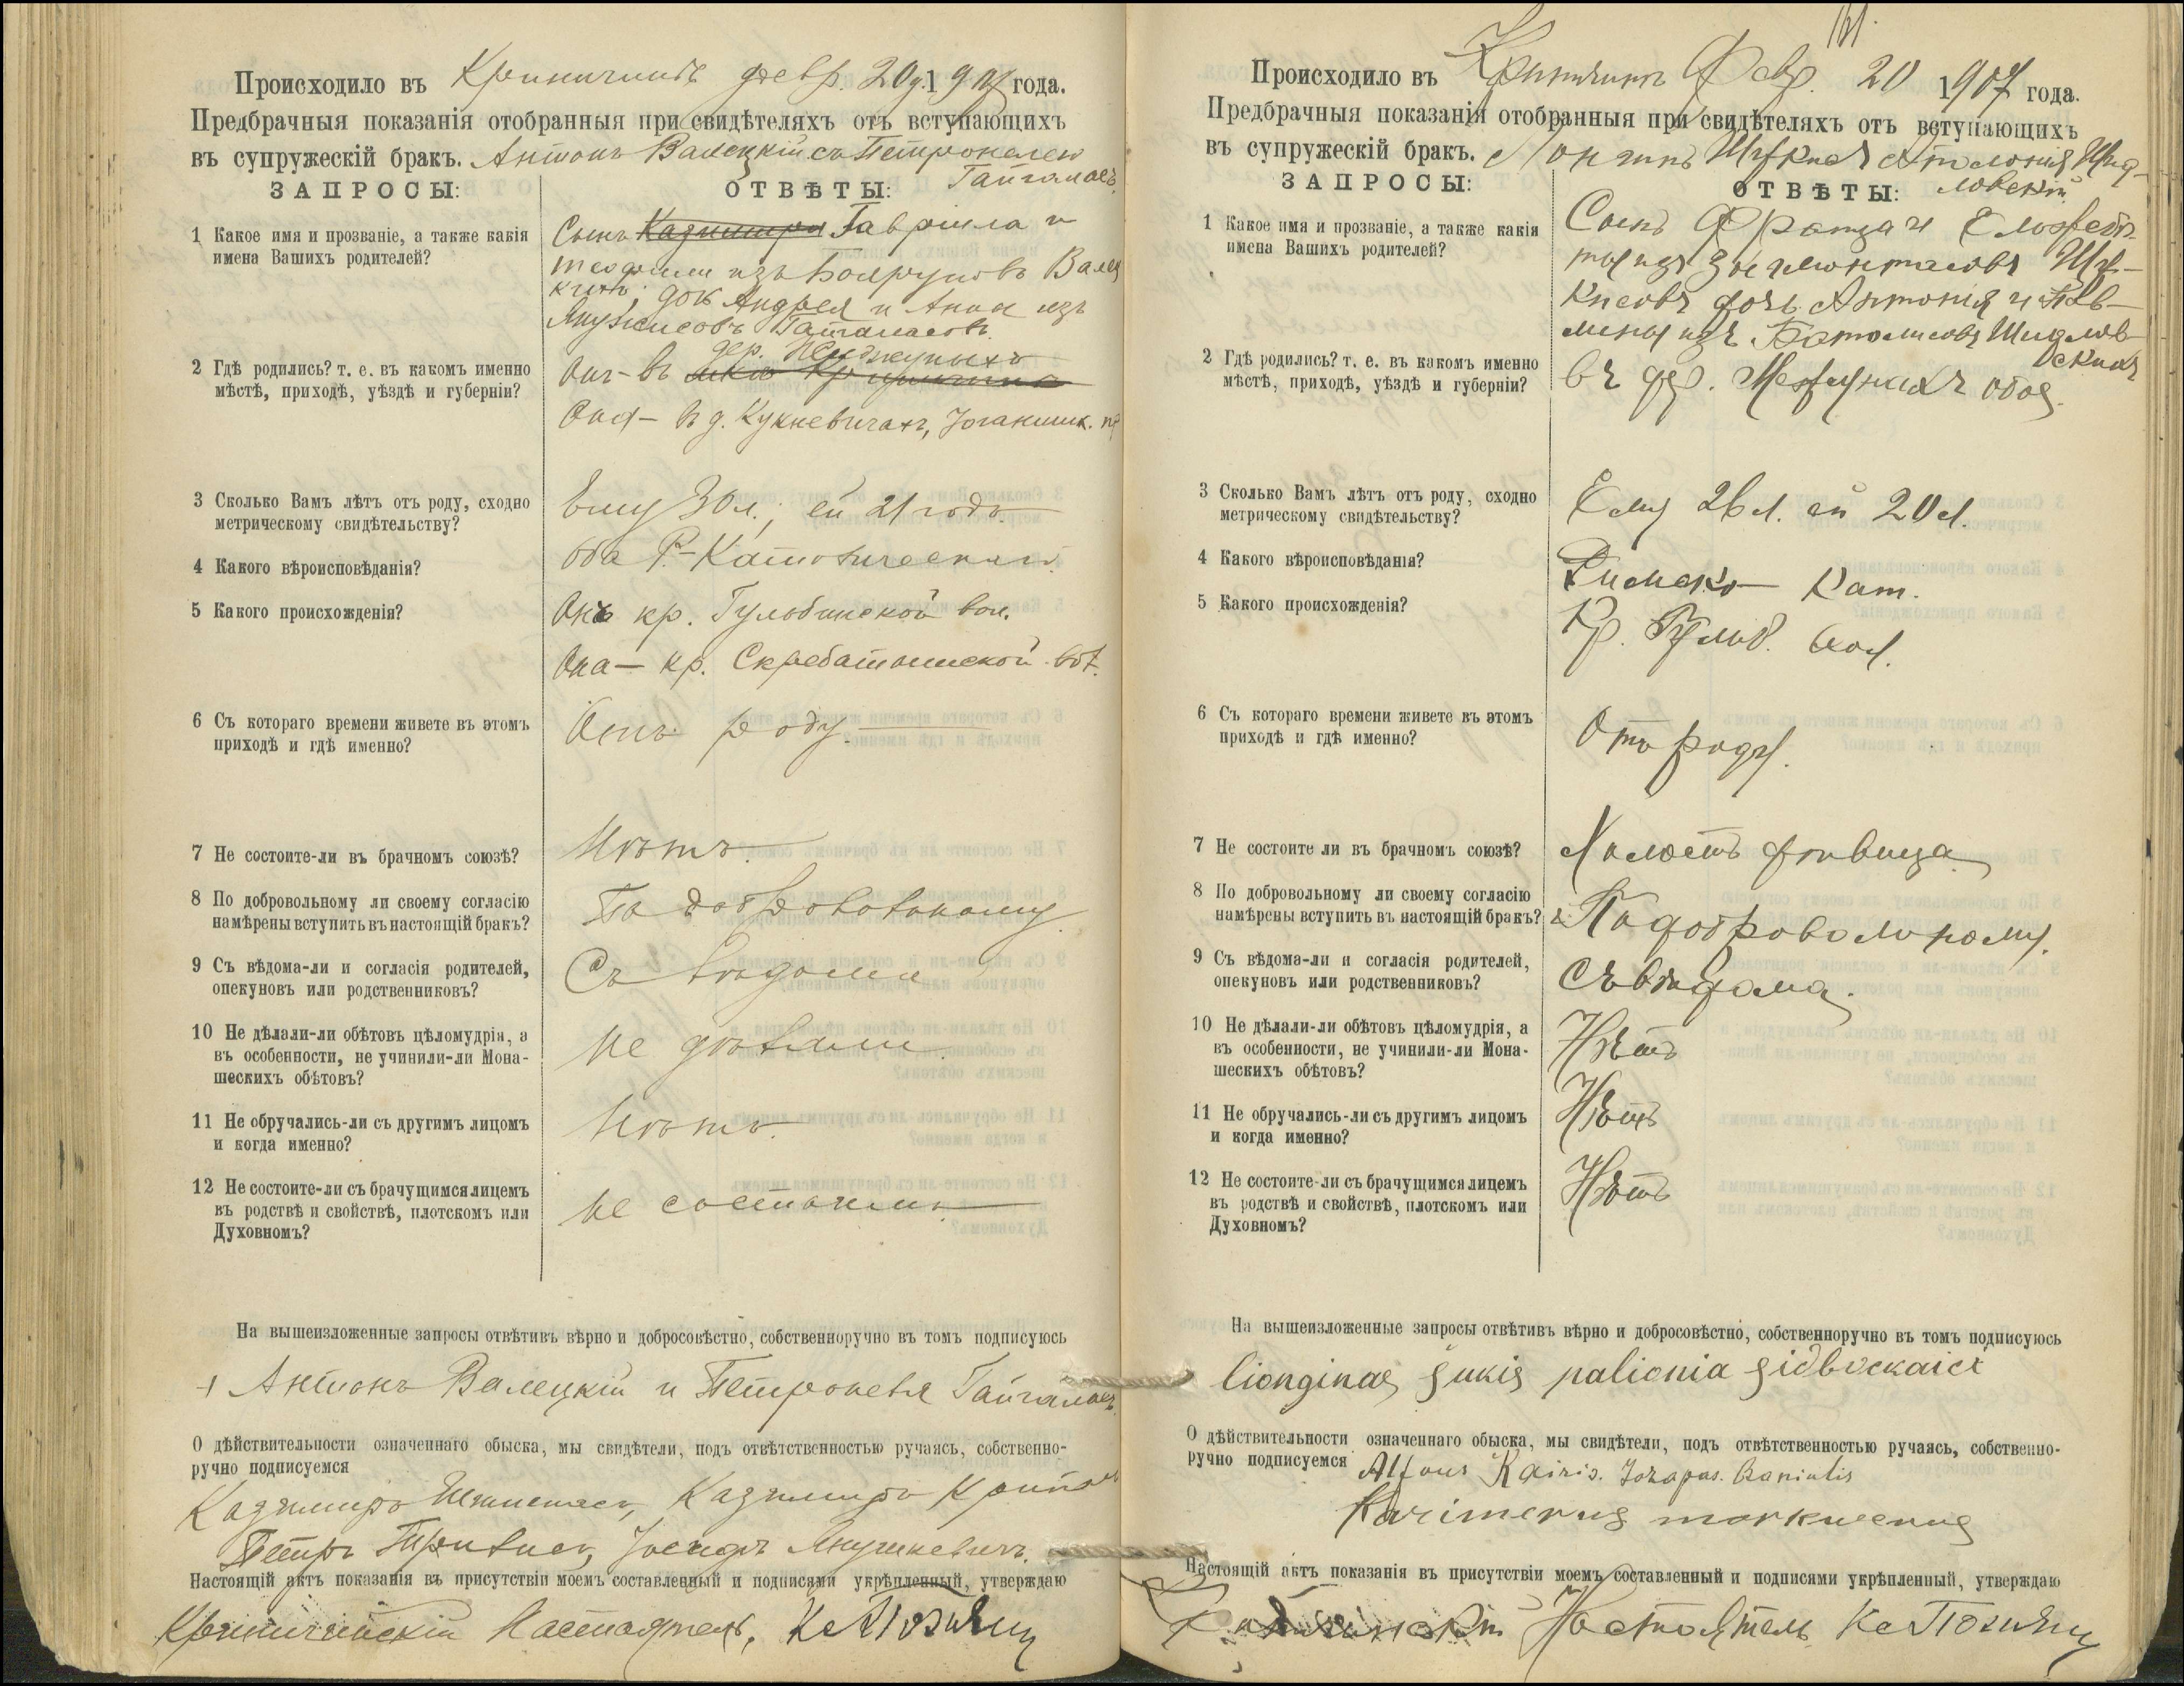 Происходило въ Криничинѣ февр. 20 д. 1907 года.
Предбрачныя показанія отобранныя при свидѣтеляхъ отъ вступающихъ
въ супружескій бракъ. Антонъ Валецкій съ Петронелею
Гайгаласъ
ЗАПРОСЫ:
ОТВѢТЫ:
1 Какое имя и прозваніе, а также какія
имена Вашихъ родителей?
Сынъ Казимира Гавріила и
Теофили изъ Валец
кихъ; дочь Андрея и Анны изъ
Гайгаласовъ
2 Гдѣ родились? т. е. въ какомъ именно
мѣстѣ, приходѣ, уѣздѣ и губерніи?
дер.
Онъ - въ
Она - въ д. Кукневичахъ,
3 Сколько Вамъ лѣтъ отъ роду, сходно
метрическому свидѣтельству?
Ему 30 л.; ей 21 годъ
4 Какого вѣроисповѣданія?
Оба Р.-Католическаго
5 Какого происхожденія?
Онъ кр. Гульбинской вол.
Она - кр. вол.
6 Съ котораго времени живете въ этомъ
приходѣ и гдѣ именно?
Отъ роду.
7 Не состоите-ли въ брачномъ союзѣ?
Нѣтъ.
8 По добровольному ли своему согласію
намѣрены вступить въ настоящій бракъ?
По добровольному
9 Съ вѣдома-ли и согласія родителей,
опекуновъ или родственниковъ?
Съ вѣдома
10 Не дѣлали-ли обѣтовъ цѣломудрія, а
въ особенности, не учинили-ли Мона-
шескихъ обѣтовъ?
Не дѣлали
11 Не обручались-ли съ другимъ лицомъ
и когда именно?
Нѣтъ.
12 Не состоите-ли съ брачущимся лицемъ
въ родствѣ и свойствѣ, плотскомъ или
Духовномъ?
Не состоимъ
На вышеизложенные запросы отвѣтивъ вѣрно и добросовѣстно, собственноручно въ томъ подписуюсь
Антонъ Валецкій и Петронеля Гайгаласъ
О дѣйствительности означеннаго обыска, мы свидѣтели, подъ отвѣтственностью ручаясь, собственно-
ручно подписуемся
Казимиръ Казимиръ
Петръ Іосифъ Янушкевичъ.
Настоящій актъ показанія въ присутствіи моемъ составленный и подписями укрѣпленный, утверждаю
Криничинскій Настоятель, Кс.
Происходило въ Криничинѣ Февр. 20 1907 года.
Предбрачныя показанія отобранныя при свидѣтеляхъ отъ вступающихъ
въ супружескій бракъ. Лонгинъ Шукисъ Аполонія Шид-
ловскій
ЗАПРОСЫ:
ОТВѢТЫ:
1 Какое имя и прозваніе, а также какія
имена Вашихъ родителей?
Сынъ Франца и Елозаве-
ты изъ Шу-
кисовъ дочь Антонія и
изъ Шидлов-
скихъ
2 Гдѣ родились? т. е. въ какомъ именно
мѣстѣ, приходѣ, уѣздѣ и губерніи?
въ дер. обоя.
3 Сколько Вамъ лѣтъ отъ роду, сходно
метрическому свидѣтельству?
Ему 26 л. ей 20 л.
4 Какого вѣроисповѣданія?
Римско - Кат.
5 Какого происхожденія?
Кр. Гульб. вол.
6 Съ котораго времени живете въ этомъ
приходѣ и гдѣ именно?
Отъ роду.
7 Не состоите ли въ брачномъ союзѣ?
Холостъ дѣвица
8 По добровольному ли своему согласію
намѣрены вступить въ настоящій бракъ?
По добровольному.
9 Съ вѣдома-ли и согласія родителей,
опекуновъ или родственниковъ?
Съ вѣдома.
10 Не дѣлали-ли обѣтовъ цѣломудрія, а
въ особенности, не учинили-ли Мона-
шескихъ обѣтовъ?
Нѣтъ
11 Не обручались-ли съ другимъ лицомъ
и когда именно?
Нѣтъ
12 Не состоите-ли съ брачущимся лицемъ
въ родствѣ и свойствѣ, плотскомъ или
Духовномъ?
Нѣтъ
На вышеизложенные запросы отвѣтивъ вѣрно и добросовѣстно, собственноручно въ томъ подписуюсь
lionginas šukis palionia
О дѣйствительности означеннаго обыска, мы свидѣтели, подъ отвѣтственностью ручаясь, собственно-
ручно подписуемся Kairis. Baniulis
Настоящій актъ показанія въ присутствіи моемъ составленный и подписями укрѣпленный, утверждаю
Настоятель Кс.